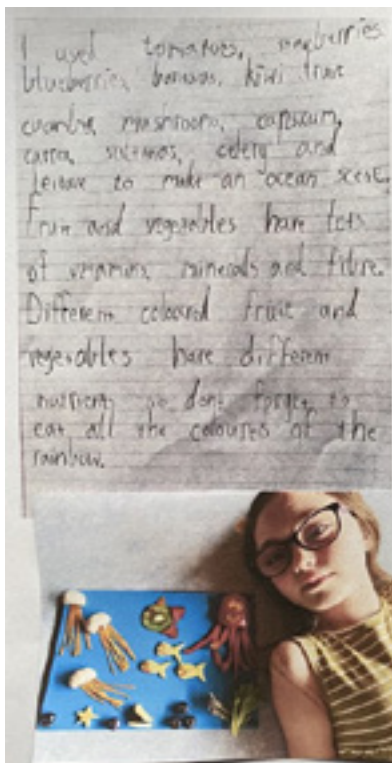 I used tomatoes, raspberries
blueberries, bananas, kiwi fruit
mushrooms, capsicum,
sultanas, celery and
to make an ocean scene.
Fruit and vegetables have lots
of vitamins, minerals and fibre.
Different coloured fruit and
vegetables have different
nutrients so dont forget to
eat all the colours of the
rainbow.